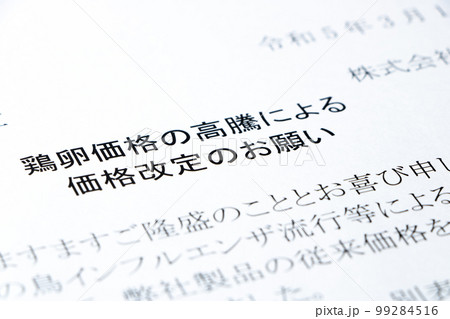 令和５年３月１
株式会社
鶏卵価格の高騰による
価格改定のお願い
ますますご隆盛のこととお喜び申し
の鳥インフルエンザ流行等による
弊社製品の従来価格を
した。
別表
pixta.jp - 99284516